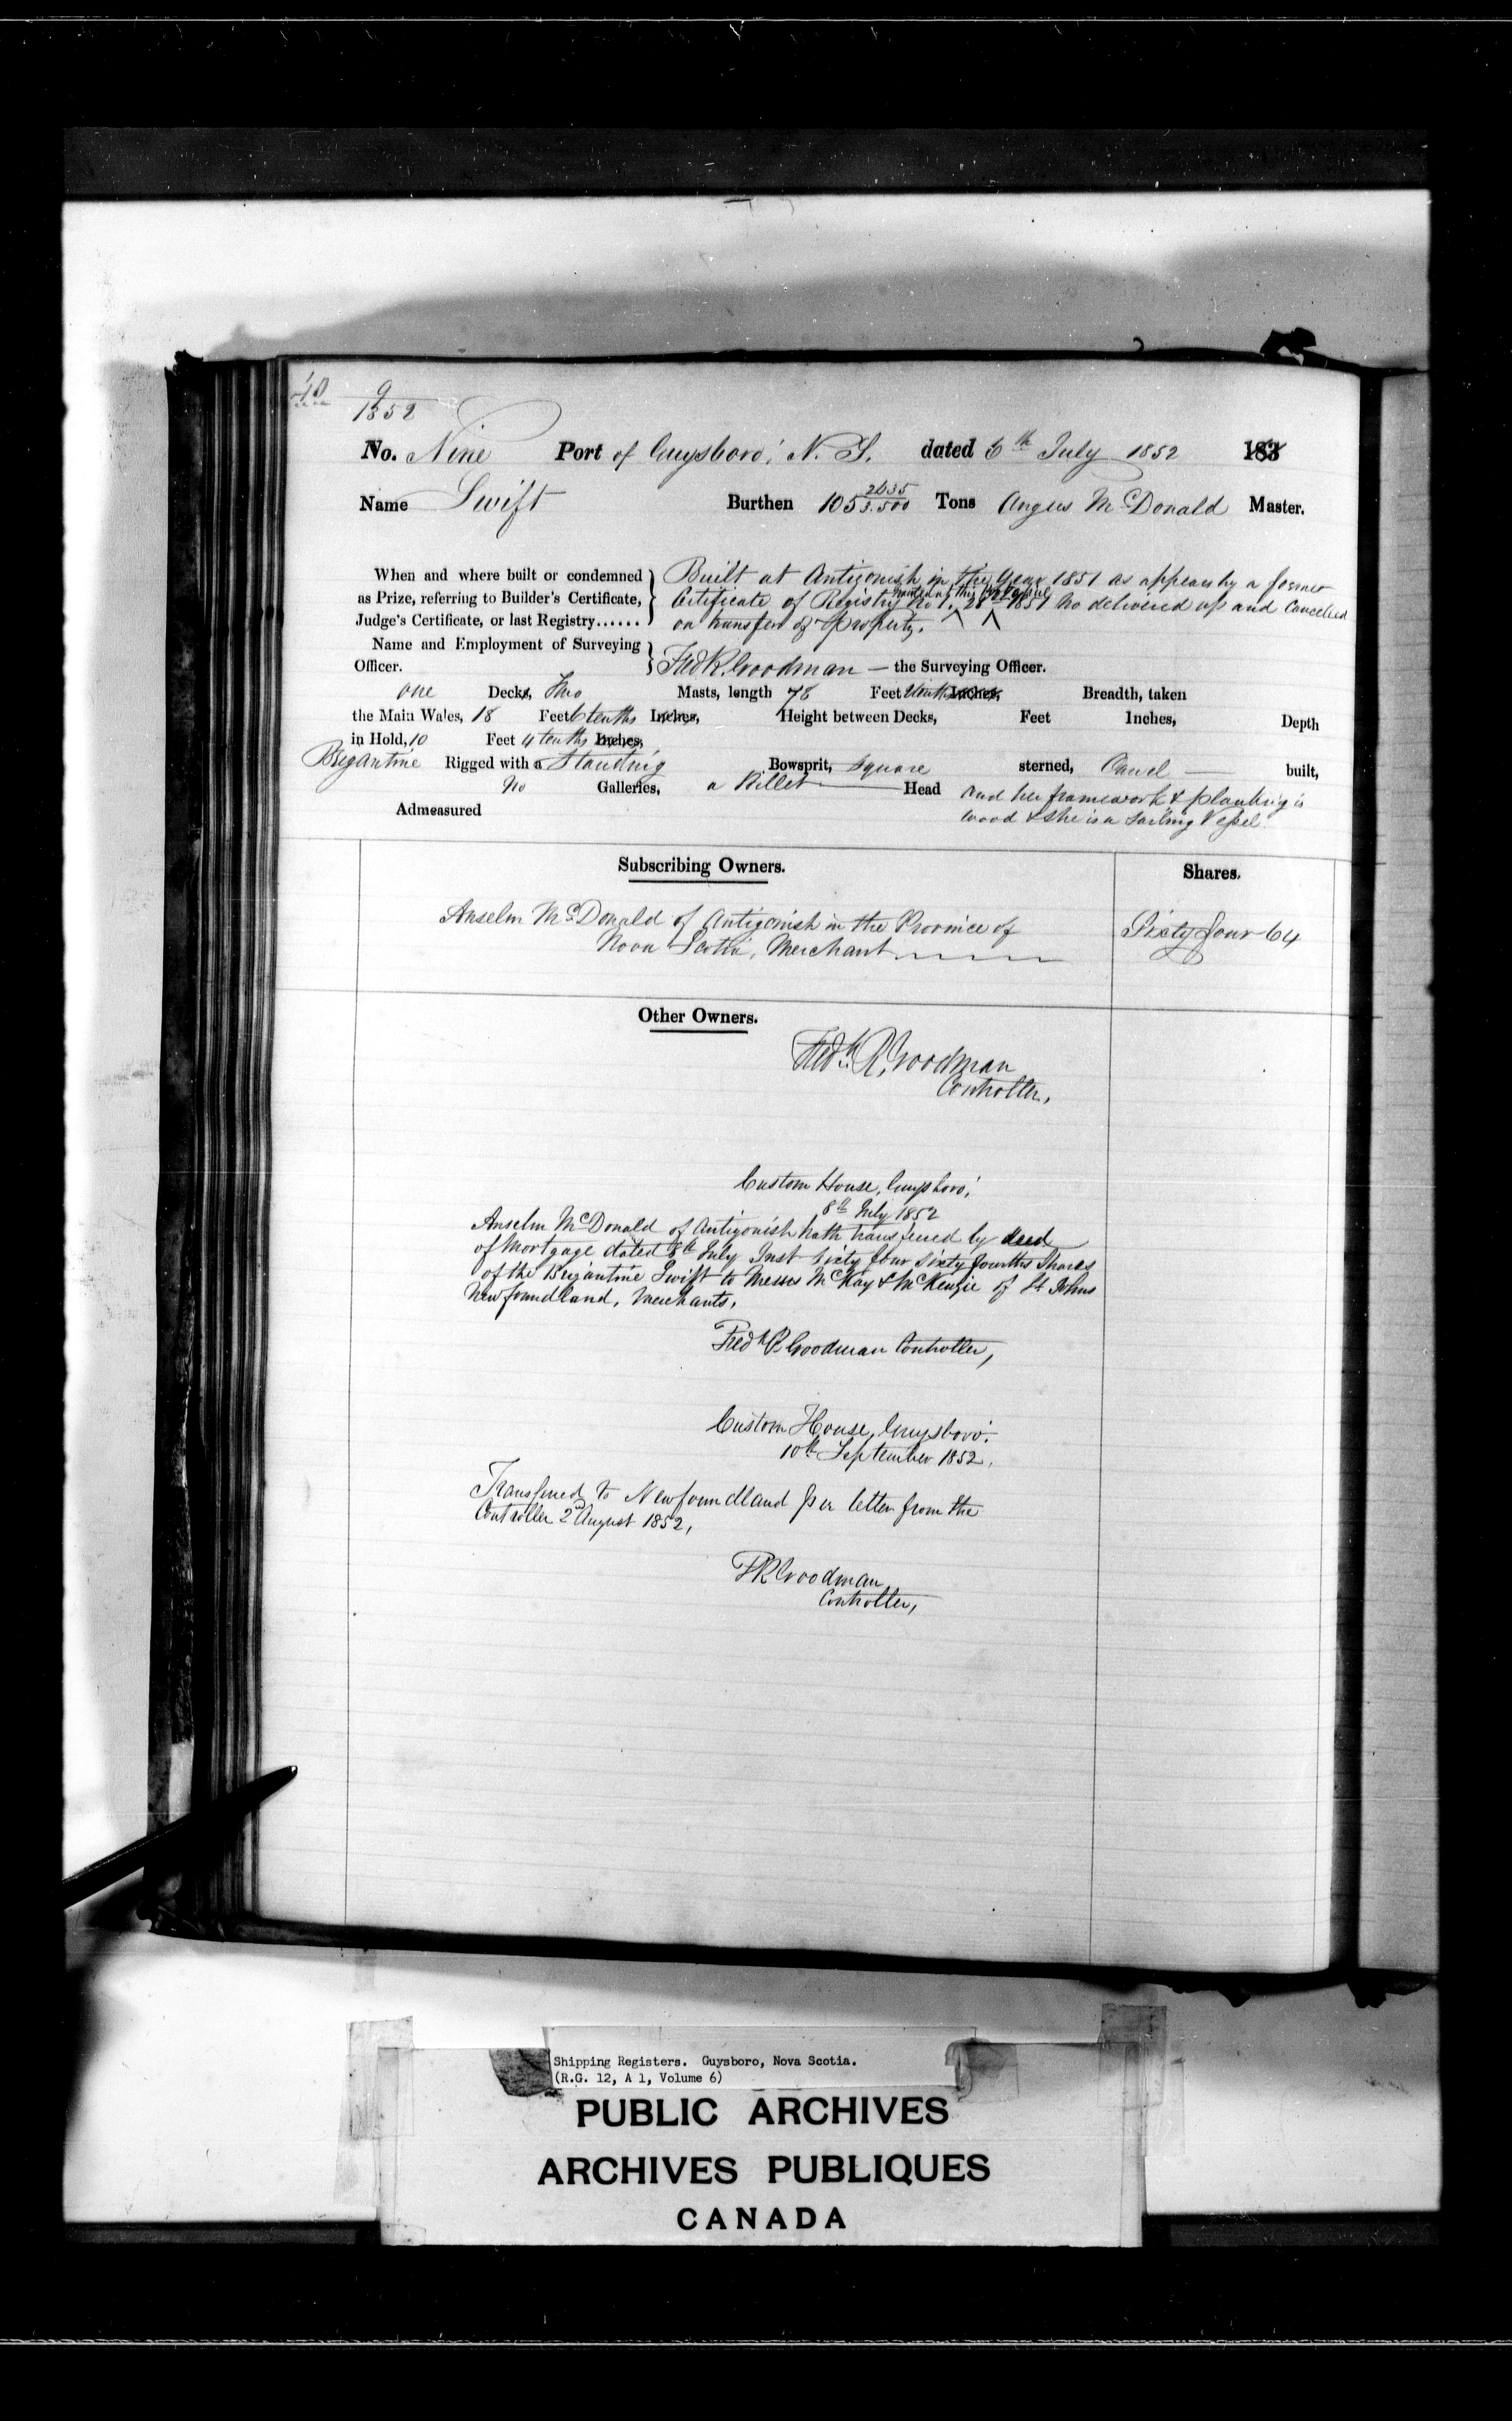 40
9
1852
No. Nine Port of Guysboro', N. S. dated 6th July 1852 183
Name Swift Burthen 105 2635/3.500 Tons Angus McDonald Master.
When and where built or condemned
as Prize, referring to Builder's Certificate,
Judge's Certificate, or last Registry......
Built at Antigonish in the Year 1851 as appears by a former
Certificate of Registry granted at this Port No 1. 28th April 1851 No delivered up and Cancelled
on transfer of Property.
Name and Employment of Surveying
Officer.
Fredk R. Goodman — the Surveying Officer.
one Decks, Two Masts, length 78 Feet tenths Inches, Breadth, taken
the Main Wales, 18 Feet 6 tenths Inches, Height between Decks, Feet Inches, Depth
in Hold, 10 Feet 4 tenths Inches,
Brigantine Rigged with a Standing Bowsprit, square sterned, Carvel built,
no Galleries, a Billet Head and her framework & planking is
Admeasured wood & she is a sailing Vessel.
Subscribing Owners. Shares.
Anselm McDonald of Antigonish in the Province of Sixty four 64
Nova Scotia, Merchant
Other Owners.
Fredk. R. Goodman
Controller,
Custom House, Guysboro',
8th July 1852
Anselm McDonald of Antigonish hath transferred by deed
of Mortgage dated 8th July Inst Sixty four Sixty fourths Shares
of the Brigantine Swift to Messrs McKay & McKenzie of St Johns
Newfoundland, Merchants,
Fredk R. Goodman Controller,
Custom House, Guysboro'.
10th September 1852.
Transferred to Newfoundland per letter from the
Controller 2d August 1852,
FR Goodman
Controller,
Shipping Registers. Guysboro, Nova Scotia.
(R.G. 12, A 1, Volume 6)
PUBLIC ARCHIVES
ARCHIVES PUBLIQUES
CANADA